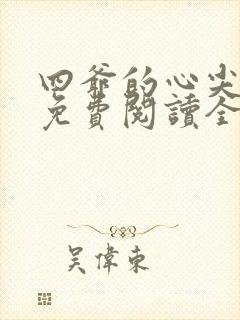 四爺的心尖
免費閱讀全
吳偉東